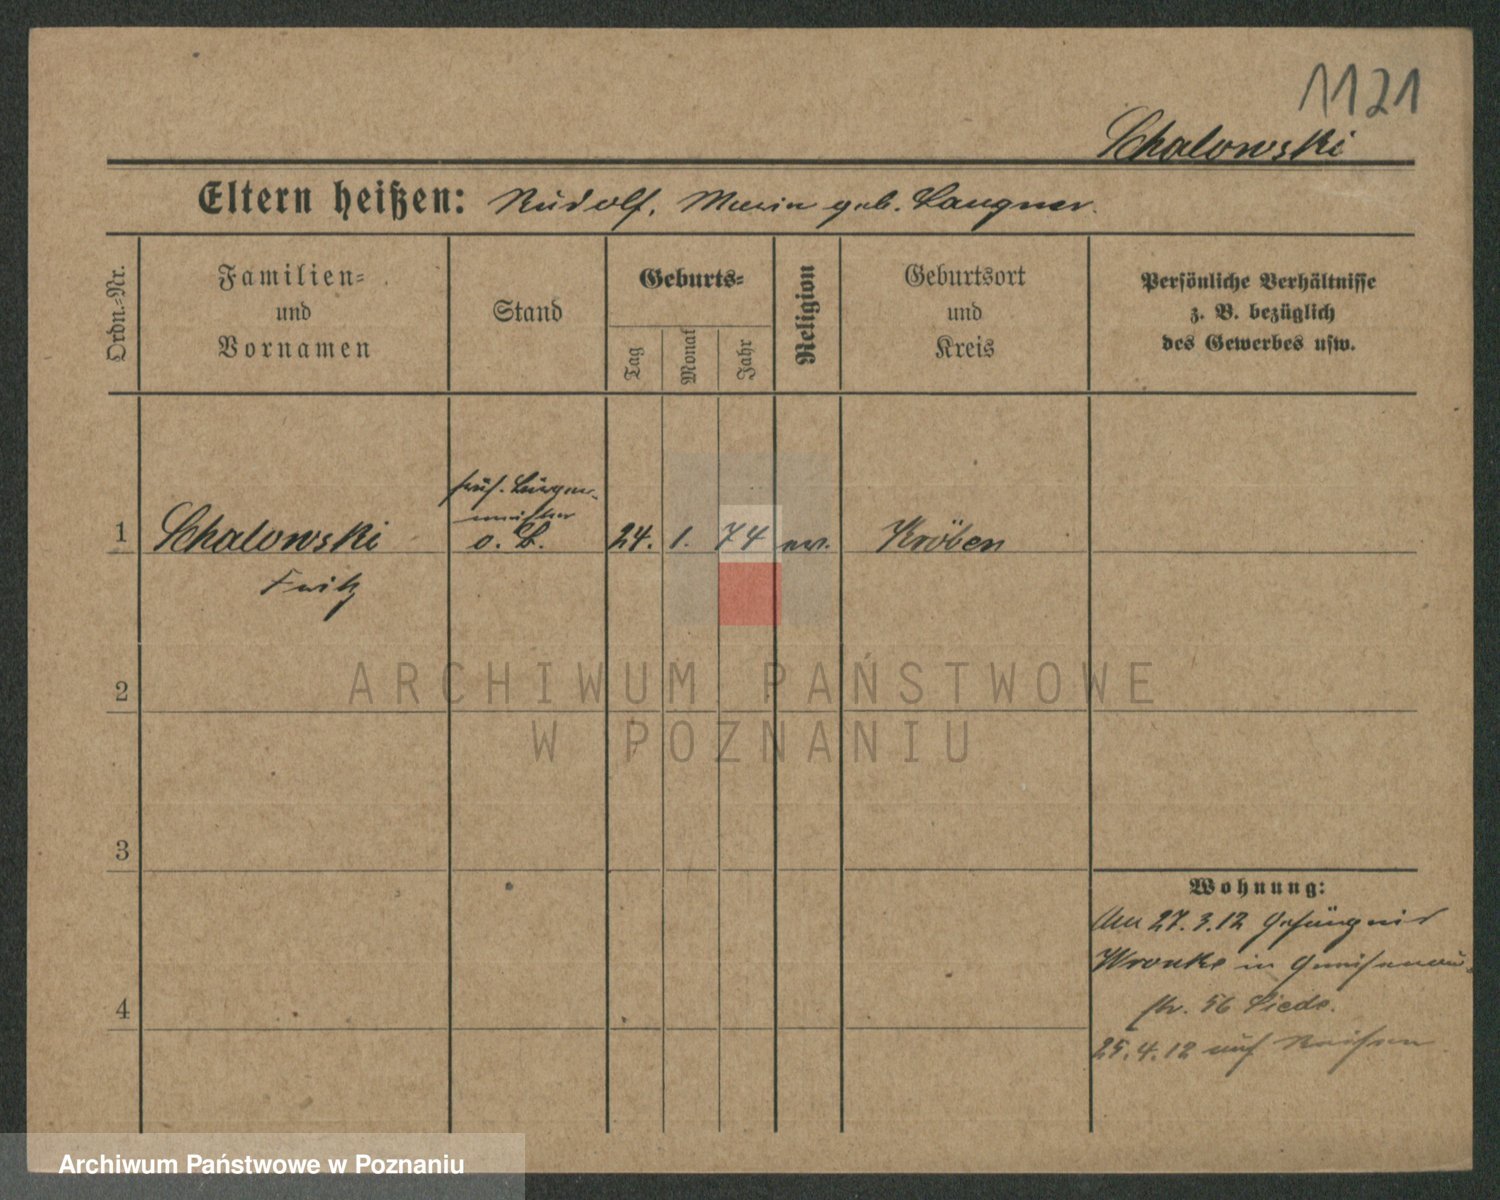 1121
Schalowski
Eltern heißen: Rudolf, Maria geb. Langner.
Ordn.-Nr.
Familien-
und
Vornamen
Stand
Geburts-
Tag
Monat
Jahr
Religion
Geburtsort
und
Kreis
Persönliche Verhältnisse
z. B. bezüglich
des Gewerbes usw.
1
Schalowski
Fritz
früh. Bürger-
meister
o. B.
24. 1. 74
ev.
Kröben
2
3
4
Wohnung:
Am 27.3.12 Gefängnis
Wronke in Gneisenau-
str. 56 Liede.
25.4.12 auf Reisen
ARCHIWUM PAŃSTWOWE
W POZNANIU
Archiwum Państwowe w Poznaniu